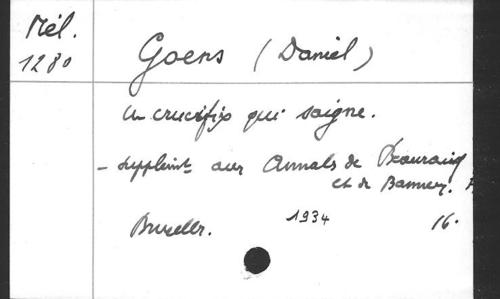 Mél.
1280
Goens (Daniel)
Un crucifix qui saigne.
- supplémt aux Annals de Beauraing
et de Banneux.
Bruxelles. 1934 16.